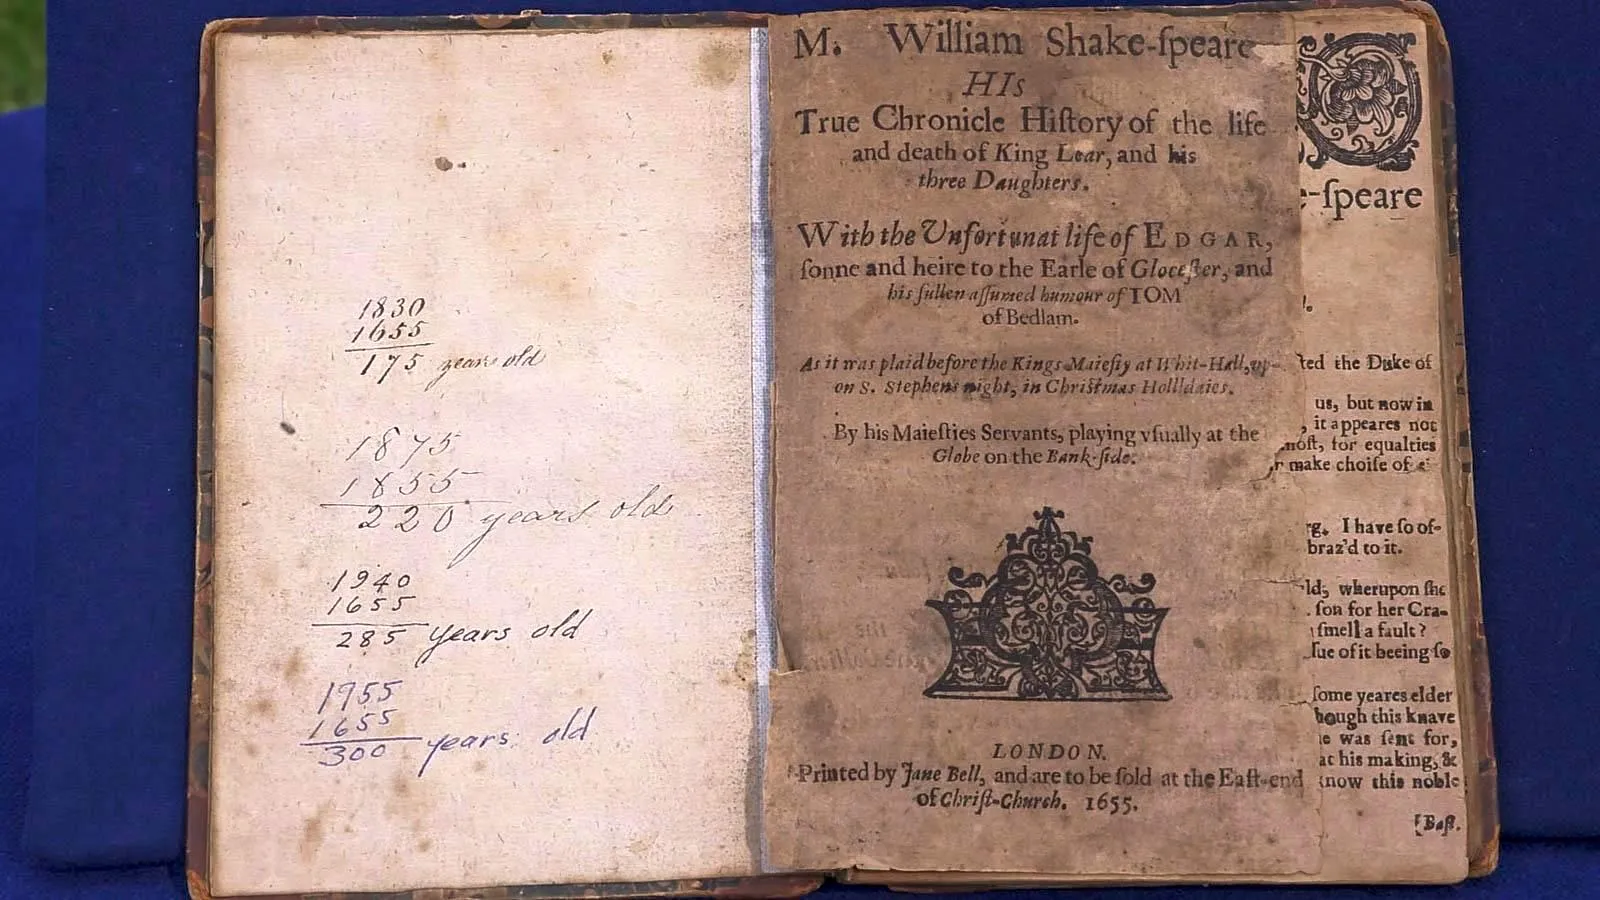 1830
1655
175 years old
1875
1855
220 years old
1940
1655
285 years old
1955
1655
300 years old
M. William Shake-ſpeare
HIs
True Chronicle Hiſtory of the life
and death of King Lear, and his
three Daughters.
With the Unfortunat life of EDGAR,
ſonne and heire to the Earle of Gloceſter, and
his ſullen aſſumed humour of TOM
of Bedlam.
As it was plaid before the Kings Maieſty at Whit-Hall, up-
on S. Stephens night, in Chriſtmas Hollidaies.
By his Maieſties Servants, playing vſually at the
Globe on the Bank-ſide.
LONDON.
Printed by Jane Bell, and are to be ſold at the Eaſt-end
of Chriſt-Church. 1655.
e-ſpeare
ted the Duke of
us, but now in
, it appeares not
moſt, for equalties
make choiſe of
rg. I have ſo of-
braz'd to it.
ld, wherupon ſhe
ſon for her Cra-
ſmell a fault?
ſue of it beeing ſo
ſome yeares elder
hough this knave
e was ſent for,
at his making, &
know this noble
[Baſt.